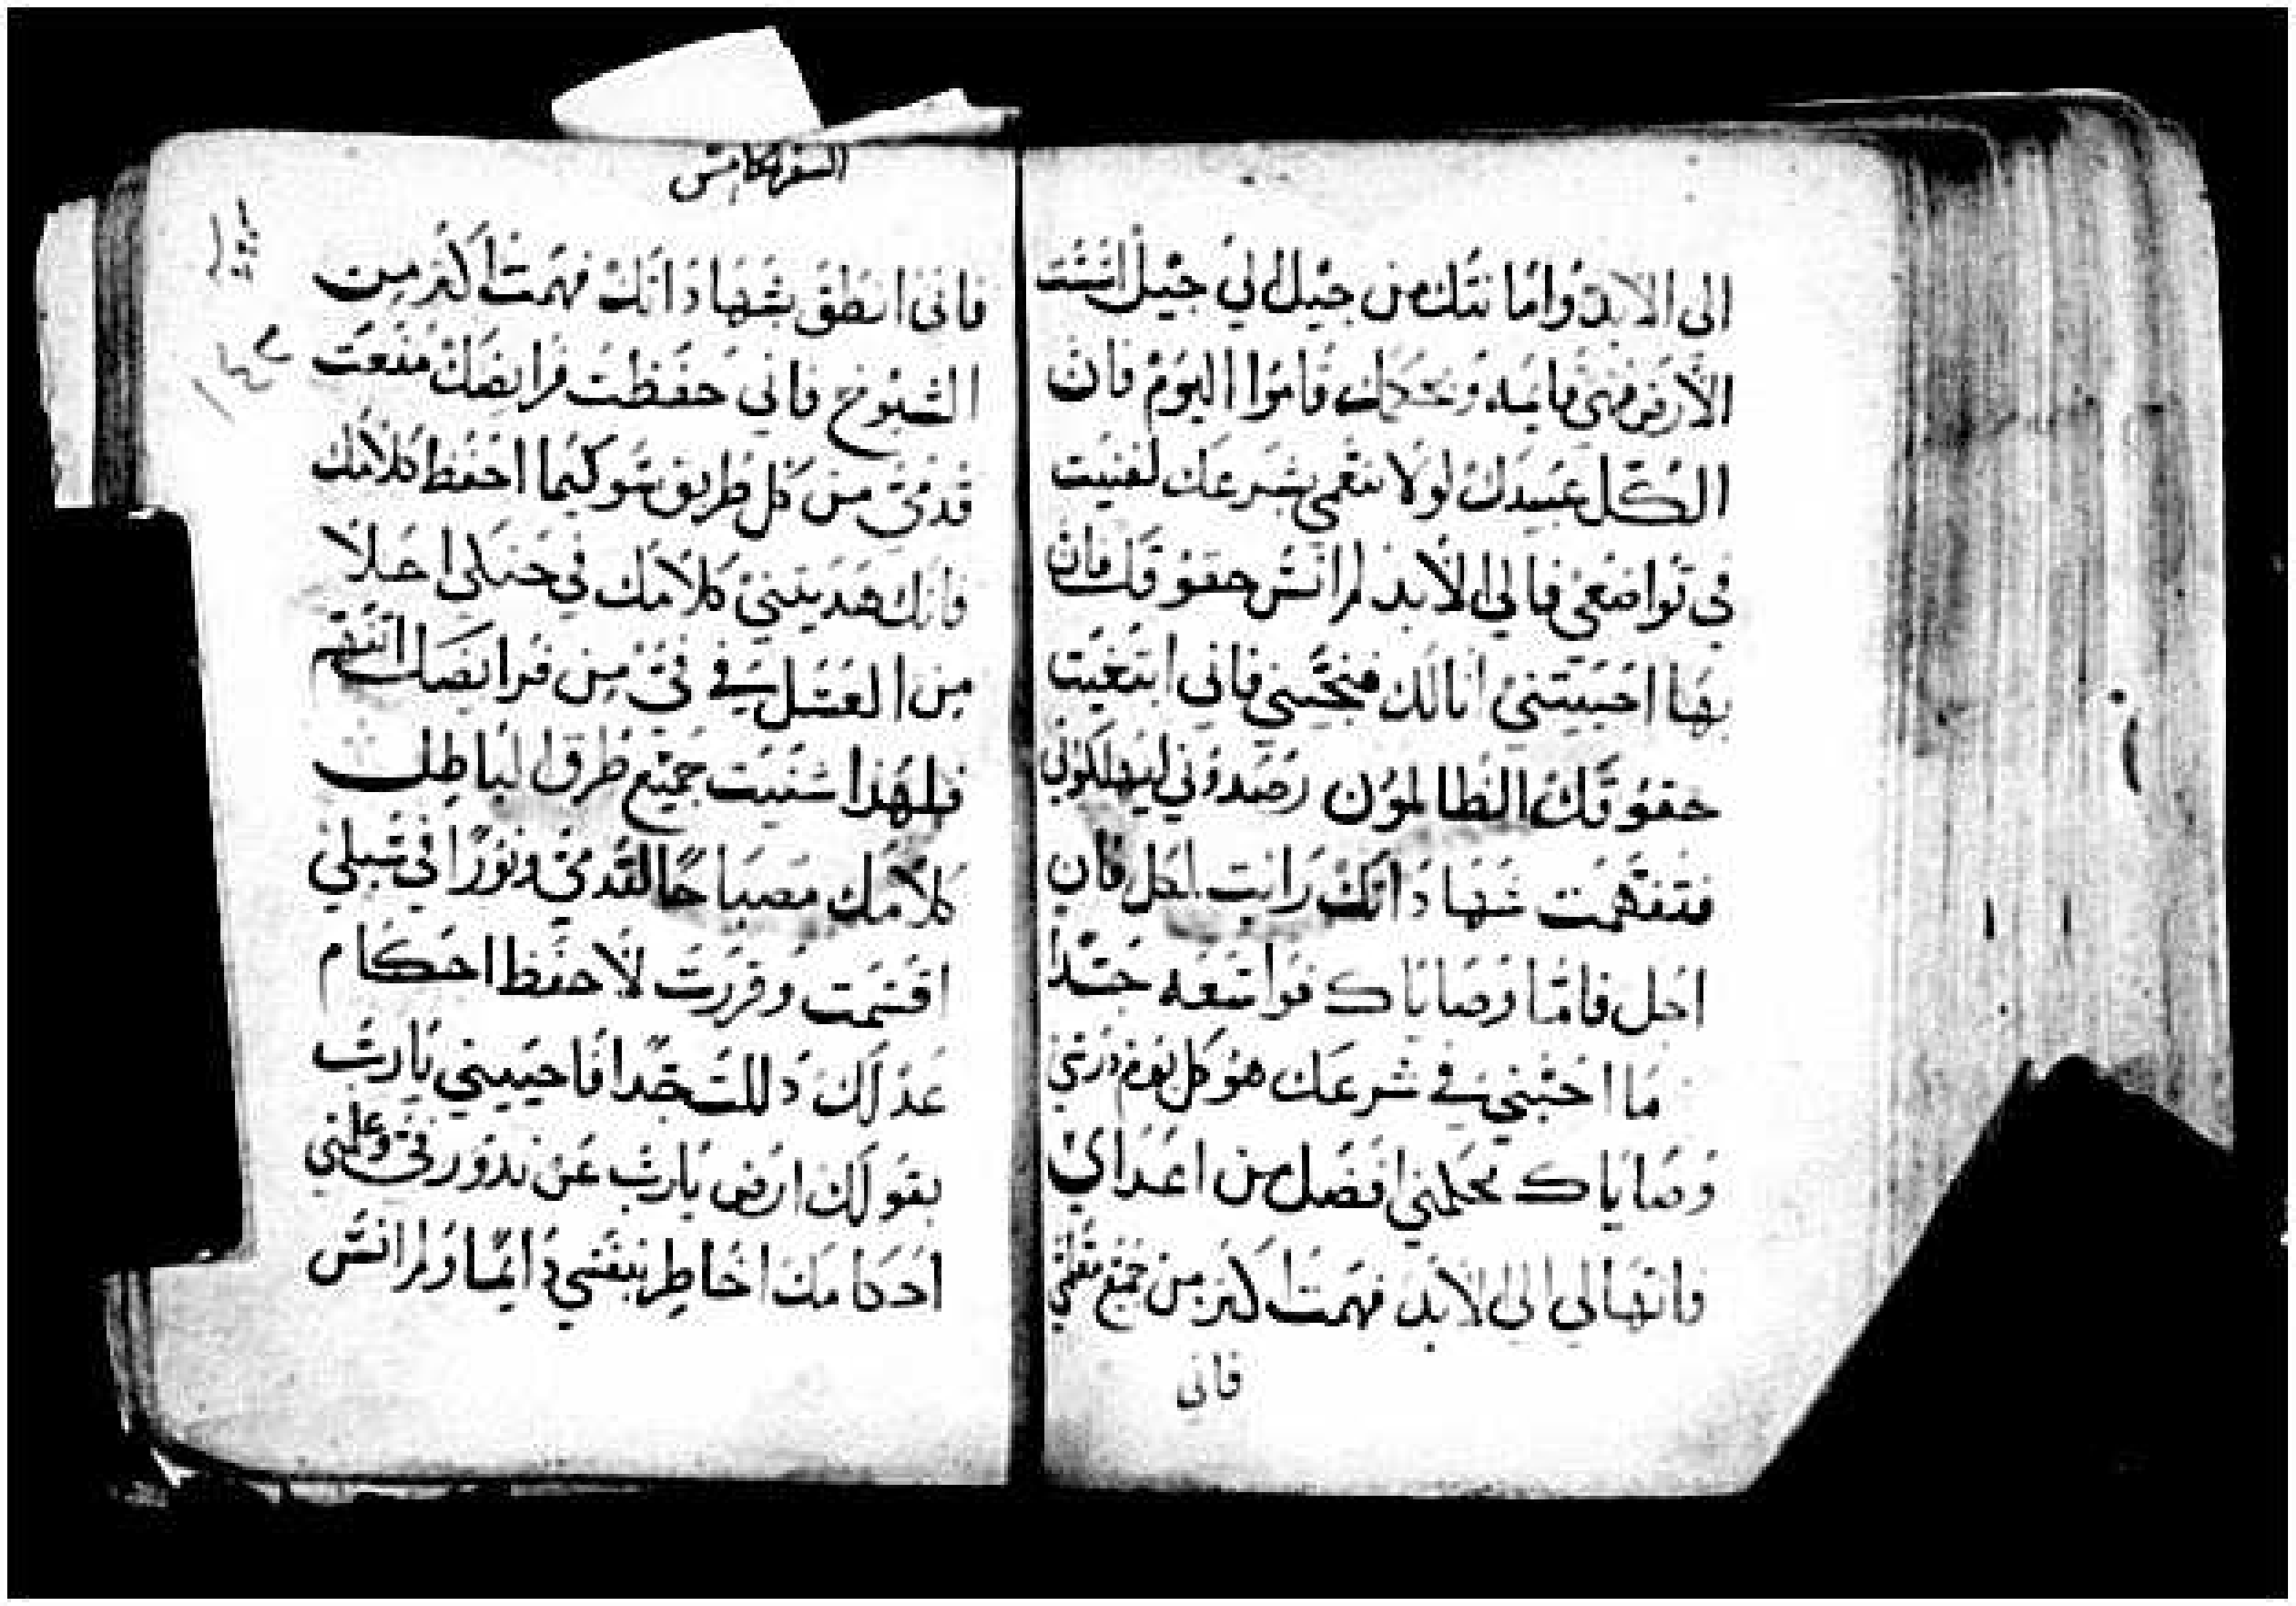 الى الابد وامانتك من جيل الي جيل اسست
الارض فهي ثابته وبحكمك قاموا اليوم فان
الكل عبيدك لولا نعمى بشرعك لفنيت
في تواضعي فالي الابد لم انس حقوقك فان
بها احييتني انا لك فنجيني فاني ابتغيت
حقوقك الظالمون رصدوني ليهلكوني
فتفهمت شهاداتك رايت لكل فان
اجل فاما وصاياك فواسعه جدا
ما احبني في شرعك هو كل يوم درسي
وصاياك تحكمني افضل من اعداي
وانها لي الى الابد فهمت اكثر من جميع معلمي
فاني
السفر الخامس
فاني انطق بشهاداتك فهمت اكثر من
الشيوخ فاني حفظت فرايضك منعت
قدمي من كل طريق سو كيما احفظ كلامك
فانك هديتني كلامك في حنكي احلا
من العسل في فمي من فرايضك اتفهم
فلهذا شنيت جميع طرق الباطل
كلامك مصباحا لقدمي ونورا في سبلي
اقسمت وقررت لاحفظ احكام
عدلك دللت جدا فاحييني يارب
بقولك ارض يارب عن ندور فمي وعلمني
احكامك اخاطر بنفسي دايما ولم انس